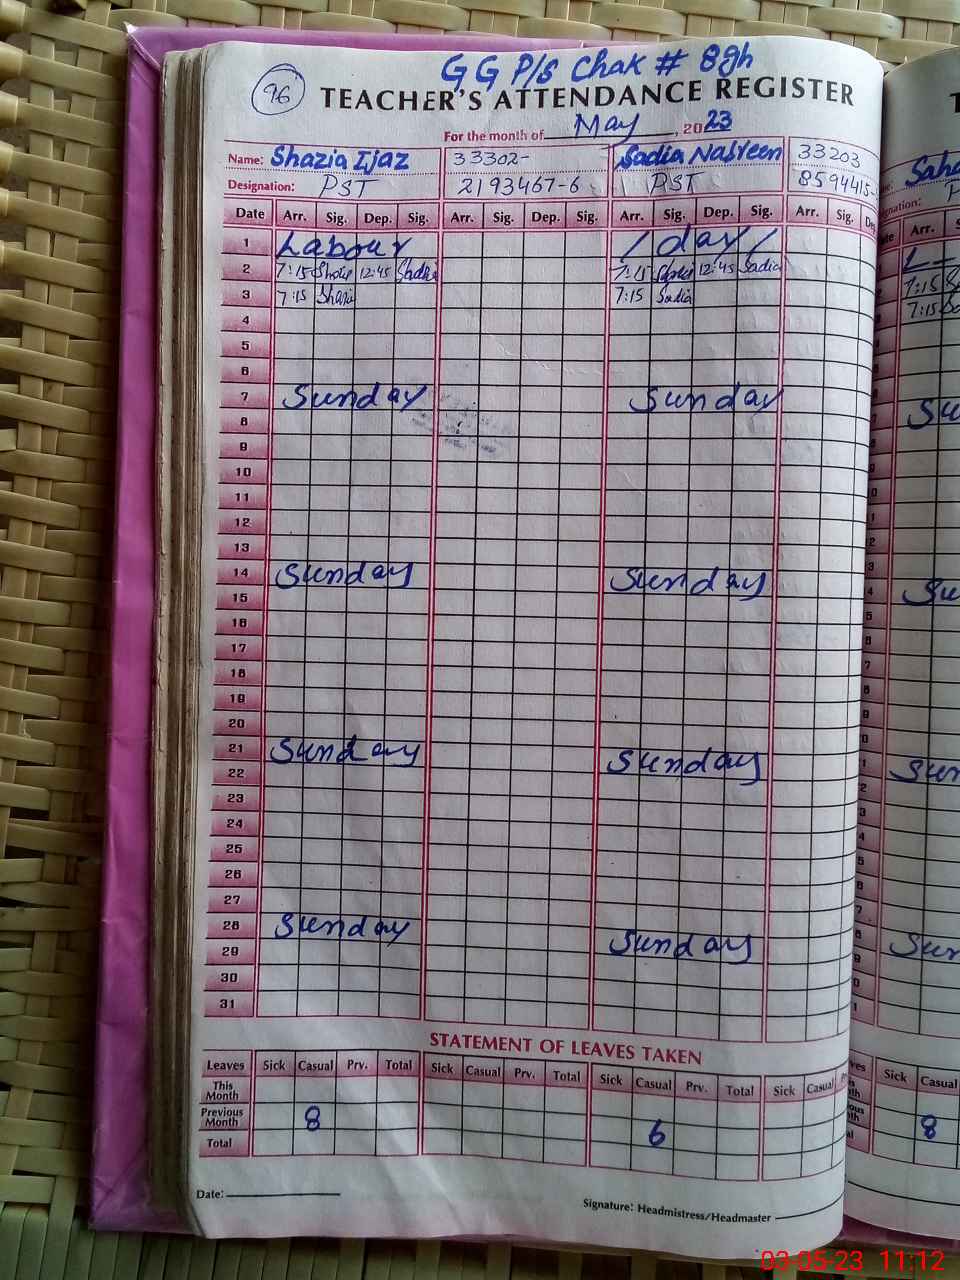 G G P/S Chak # 8gh
96
TEACHER'S ATTENDANCE REGISTER
For the month of May, 2023
Name: Shazia Ijaz 33302- Sadia Nasreen 33203
Designation: PST 2193467-6 PST 8594415-
Date Arr. Sig. Dep. Sig. Arr. Sig. Dep. Sig. Arr. Sig. Dep. Sig. Arr. Sig. De
1 Labour / day /
2 7:15 12:45 7:15 12:45 Sadia
3 7:15 Shazi 7:15 Sadia
4
5
6
7 Sunday Sunday Su
8
9
10
11
12
13
14 Sunday Sunday Su
15
16
17
18
19
20
21 Sunday Sunday Sun
22
23
24
25
26
27
28 Sunday Sunday Sun
29
30
31
STATEMENT OF LEAVES TAKEN
Leaves Sick Casual Prv. Total Sick Casual Prv. Total Sick Casual Prv. Total Sick Casual Sick Casual
This Month
Previous Month 8 6 8
Total
Date:
Signature: Headmistress/Headmaster
03-05-23 11:12